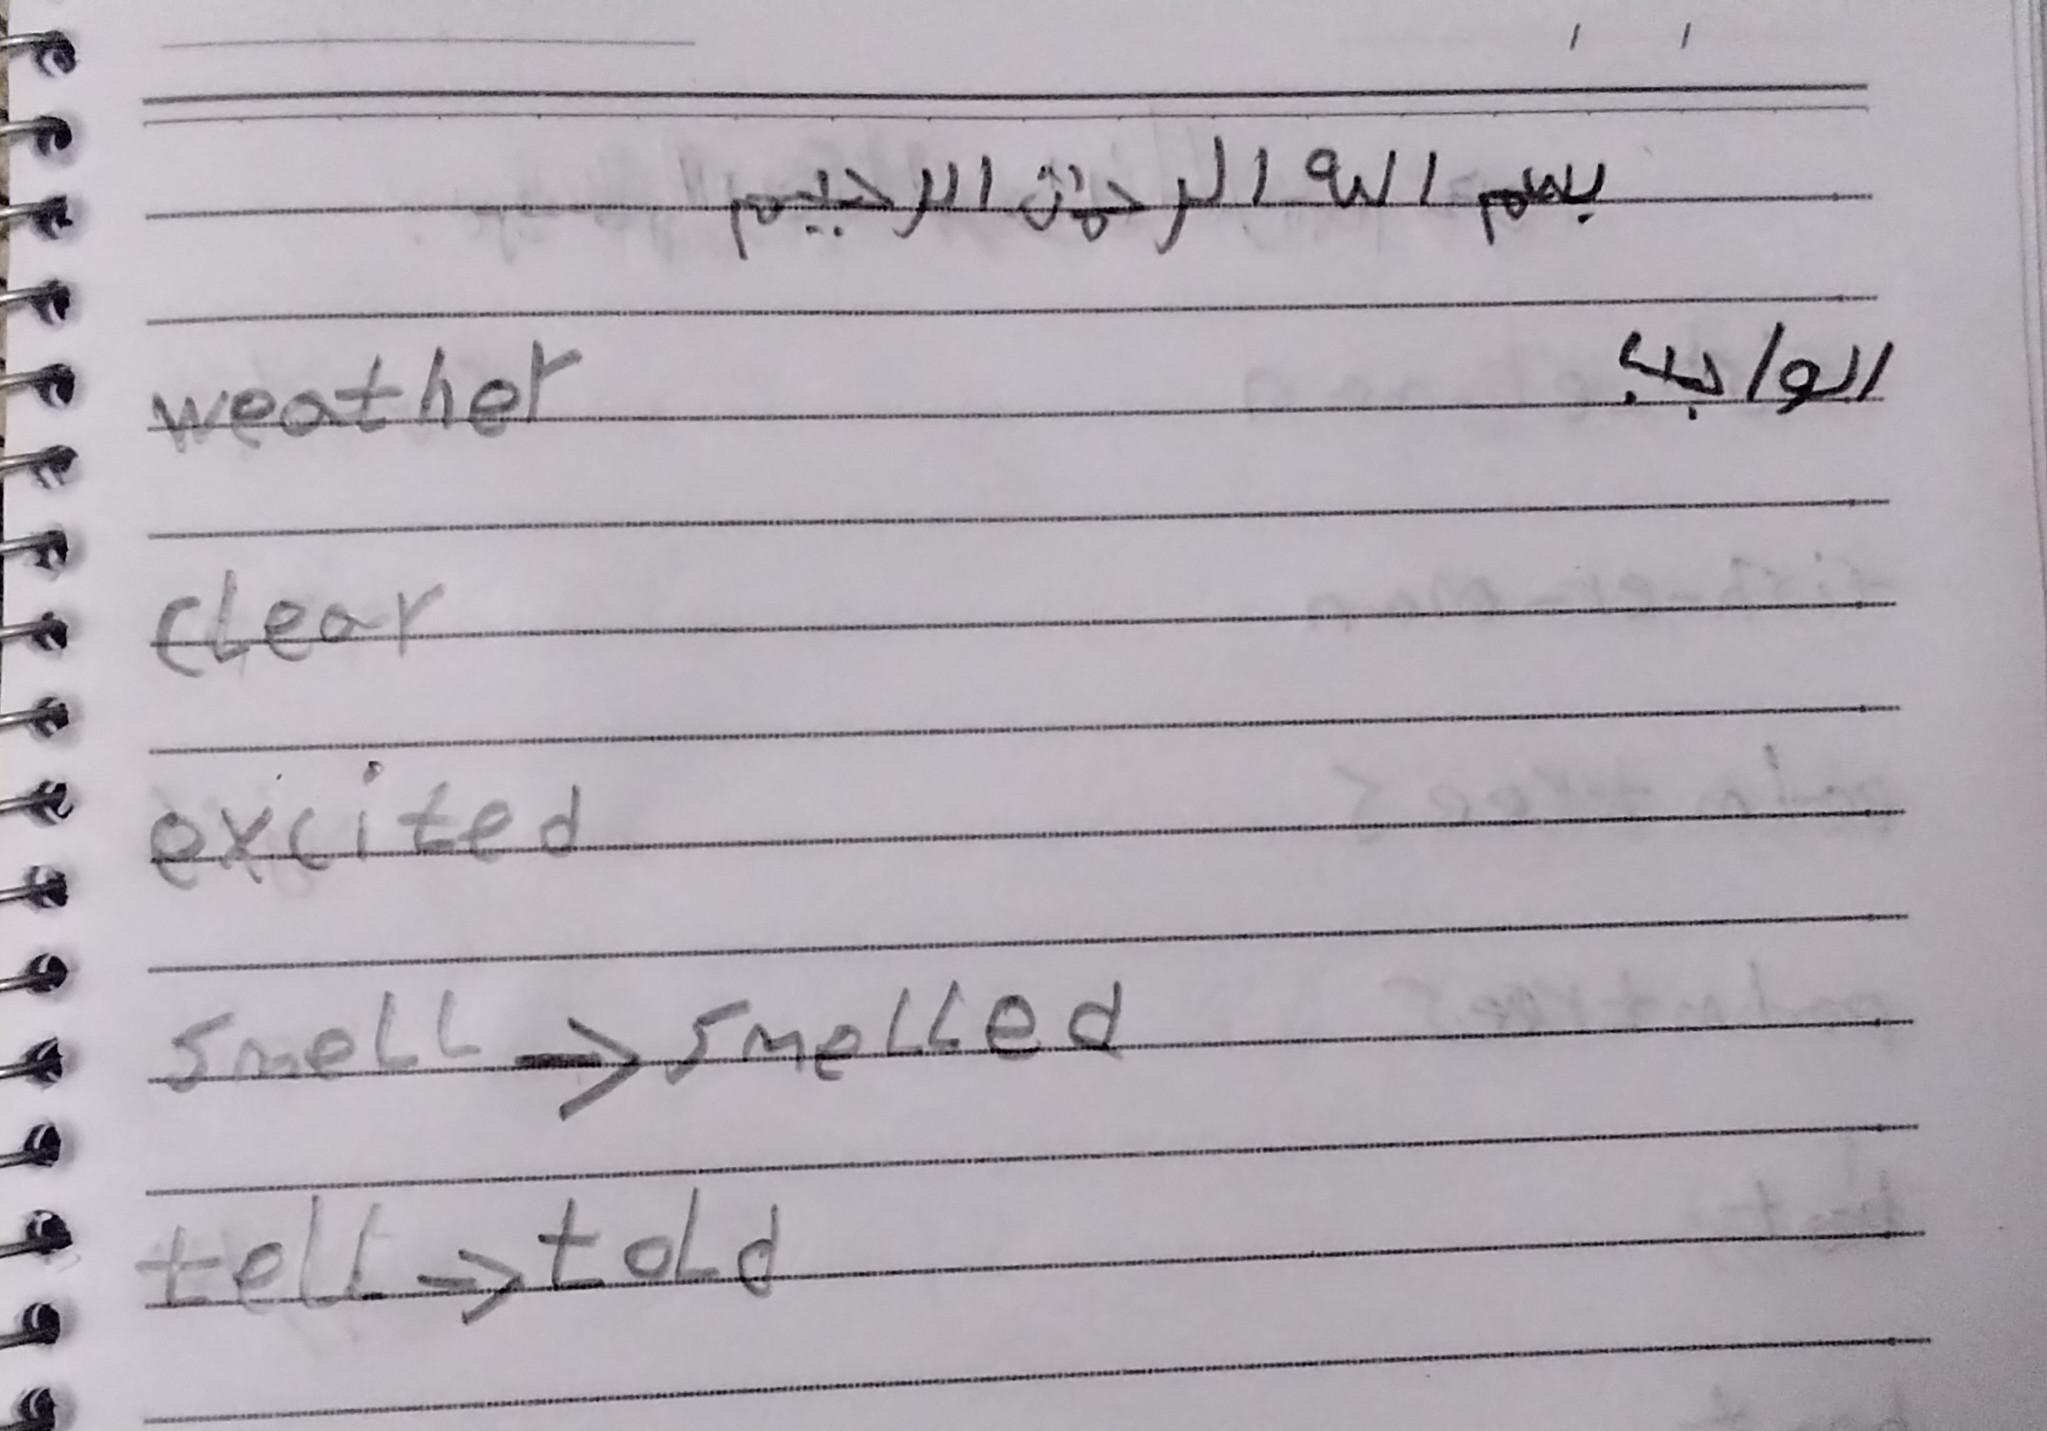 بسم الله الرحمن الرحيم
الواجب
weather
clear
excited
smell → smelled
tell → told